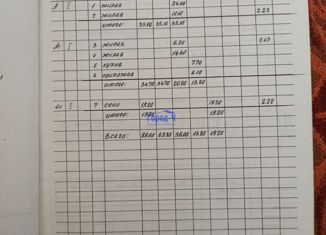 А I 1 жилая 24.00
2 жилая 11.10 2.25
итого: 35.10 35.10 35.10
А1 I 3 жилая 6.50 2.47
4 жилая
5 кухня 7.70
6 прихожая 6.10
итого: 34.70 34.70 20.90 13.80
а1 I 7 сени 19.20 19.20 2.20
итого: 19.20 19.20
Город-N
Всего: 56.00 13.80 19.20